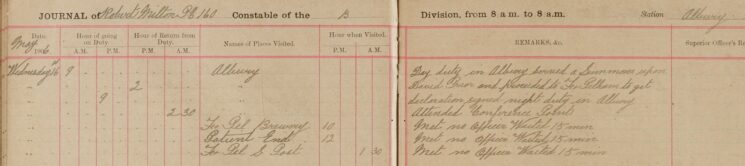 JOURNAL of Robert Milton PC 160 Constable of the B Division, from 8 a.m. to 8 a.m. Station Albury
Date Hour of going on Duty. Hour of Return from Duty. Names of Places Visited. Hour when Visited. REMARKS, &c. Superior Officer's
May 186 A.M. P.M. P.M. A.M. P.M. A.M.
Wednesday 9 Albury Day duty in Albury served a Summons upon
" 2 " David Prior and proceeded to Fx Pelham to get
" 9 declaration signed night duty in Albury
" 2 30 Attended Conference Points
" Fx Pel 10 Met no Officer Waited 15 min
" Patient End 12 Met no Officer Waited 15 min
" Fx Pel S Post 1 30 Met no Officer Waited 15 min